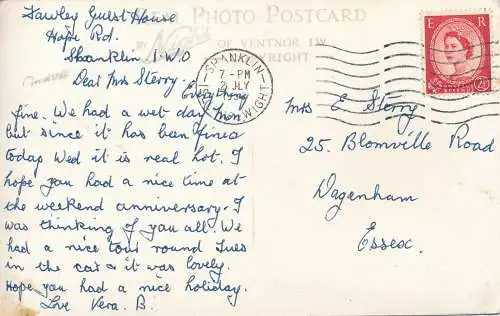 Fawley Guest House
Hope Rd.
Shanklin I.W.O
Dear Mrs Sterry. Everything
fine. We had a wet day Mon
but since it has been fine
today Wed it is real hot. I
hope you had a nice time at
the weekend anniversary. I
was thinking of you all. We
had a nice tour round Tues
in the car & it was lovely.
Hope you had a nice holiday.
Love Vera. B.
PHOTO POSTCARD
BY
OF VENTNOR I.W
COPYRIGHT
SHANKLIN
7 - PM
JLY
ISLE OF WIGHT
E R
POSTAGE
REVENUE
2½D
Mrs E Sterry
25. Blomville Road
Dagenham
Essex.